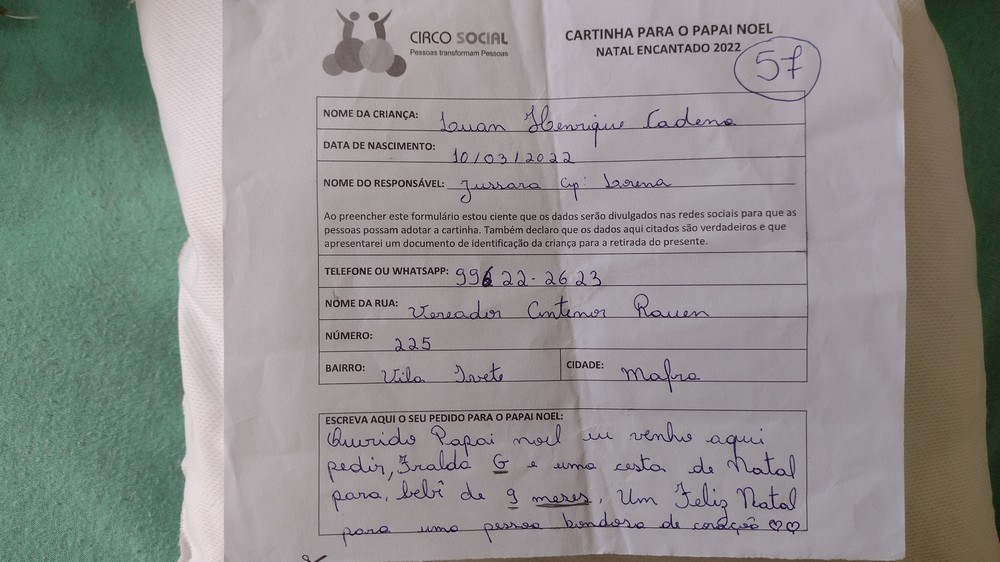 CIRCO SOCIAL
Pessoas transformam Pessoas
CARTINHA PARA O PAPAI NOEL
NATAL ENCANTADO 2022
57
NOME DA CRIANÇA: Luan Henrique Cadena
DATA DE NASCIMENTO: 10/03/2022
NOME DO RESPONSÁVEL: Jussara Ap. Lorena
Ao preencher este formulário estou ciente que os dados serão divulgados nas redes sociais para que as
pessoas possam adotar a cartinha. Também declaro que os dados aqui citados são verdadeiros e que
apresentarei um documento de identificação da criança para a retirada do presente.
TELEFONE OU WHATSAPP: 99622-2623
NOME DA RUA: Vereador Antenor Rauen
NÚMERO: 225
BAIRRO: Vila Ivete CIDADE: Mafra
ESCREVA AQUI O SEU PEDIDO PARA O PAPAI NOEL:
Querido Papai noel eu venho aqui
pedir, Fralda G e uma cesta de Natal
para, bebê de 9 meses. Um Feliz Natal
para uma pessoa bondosa de coração ♡♡